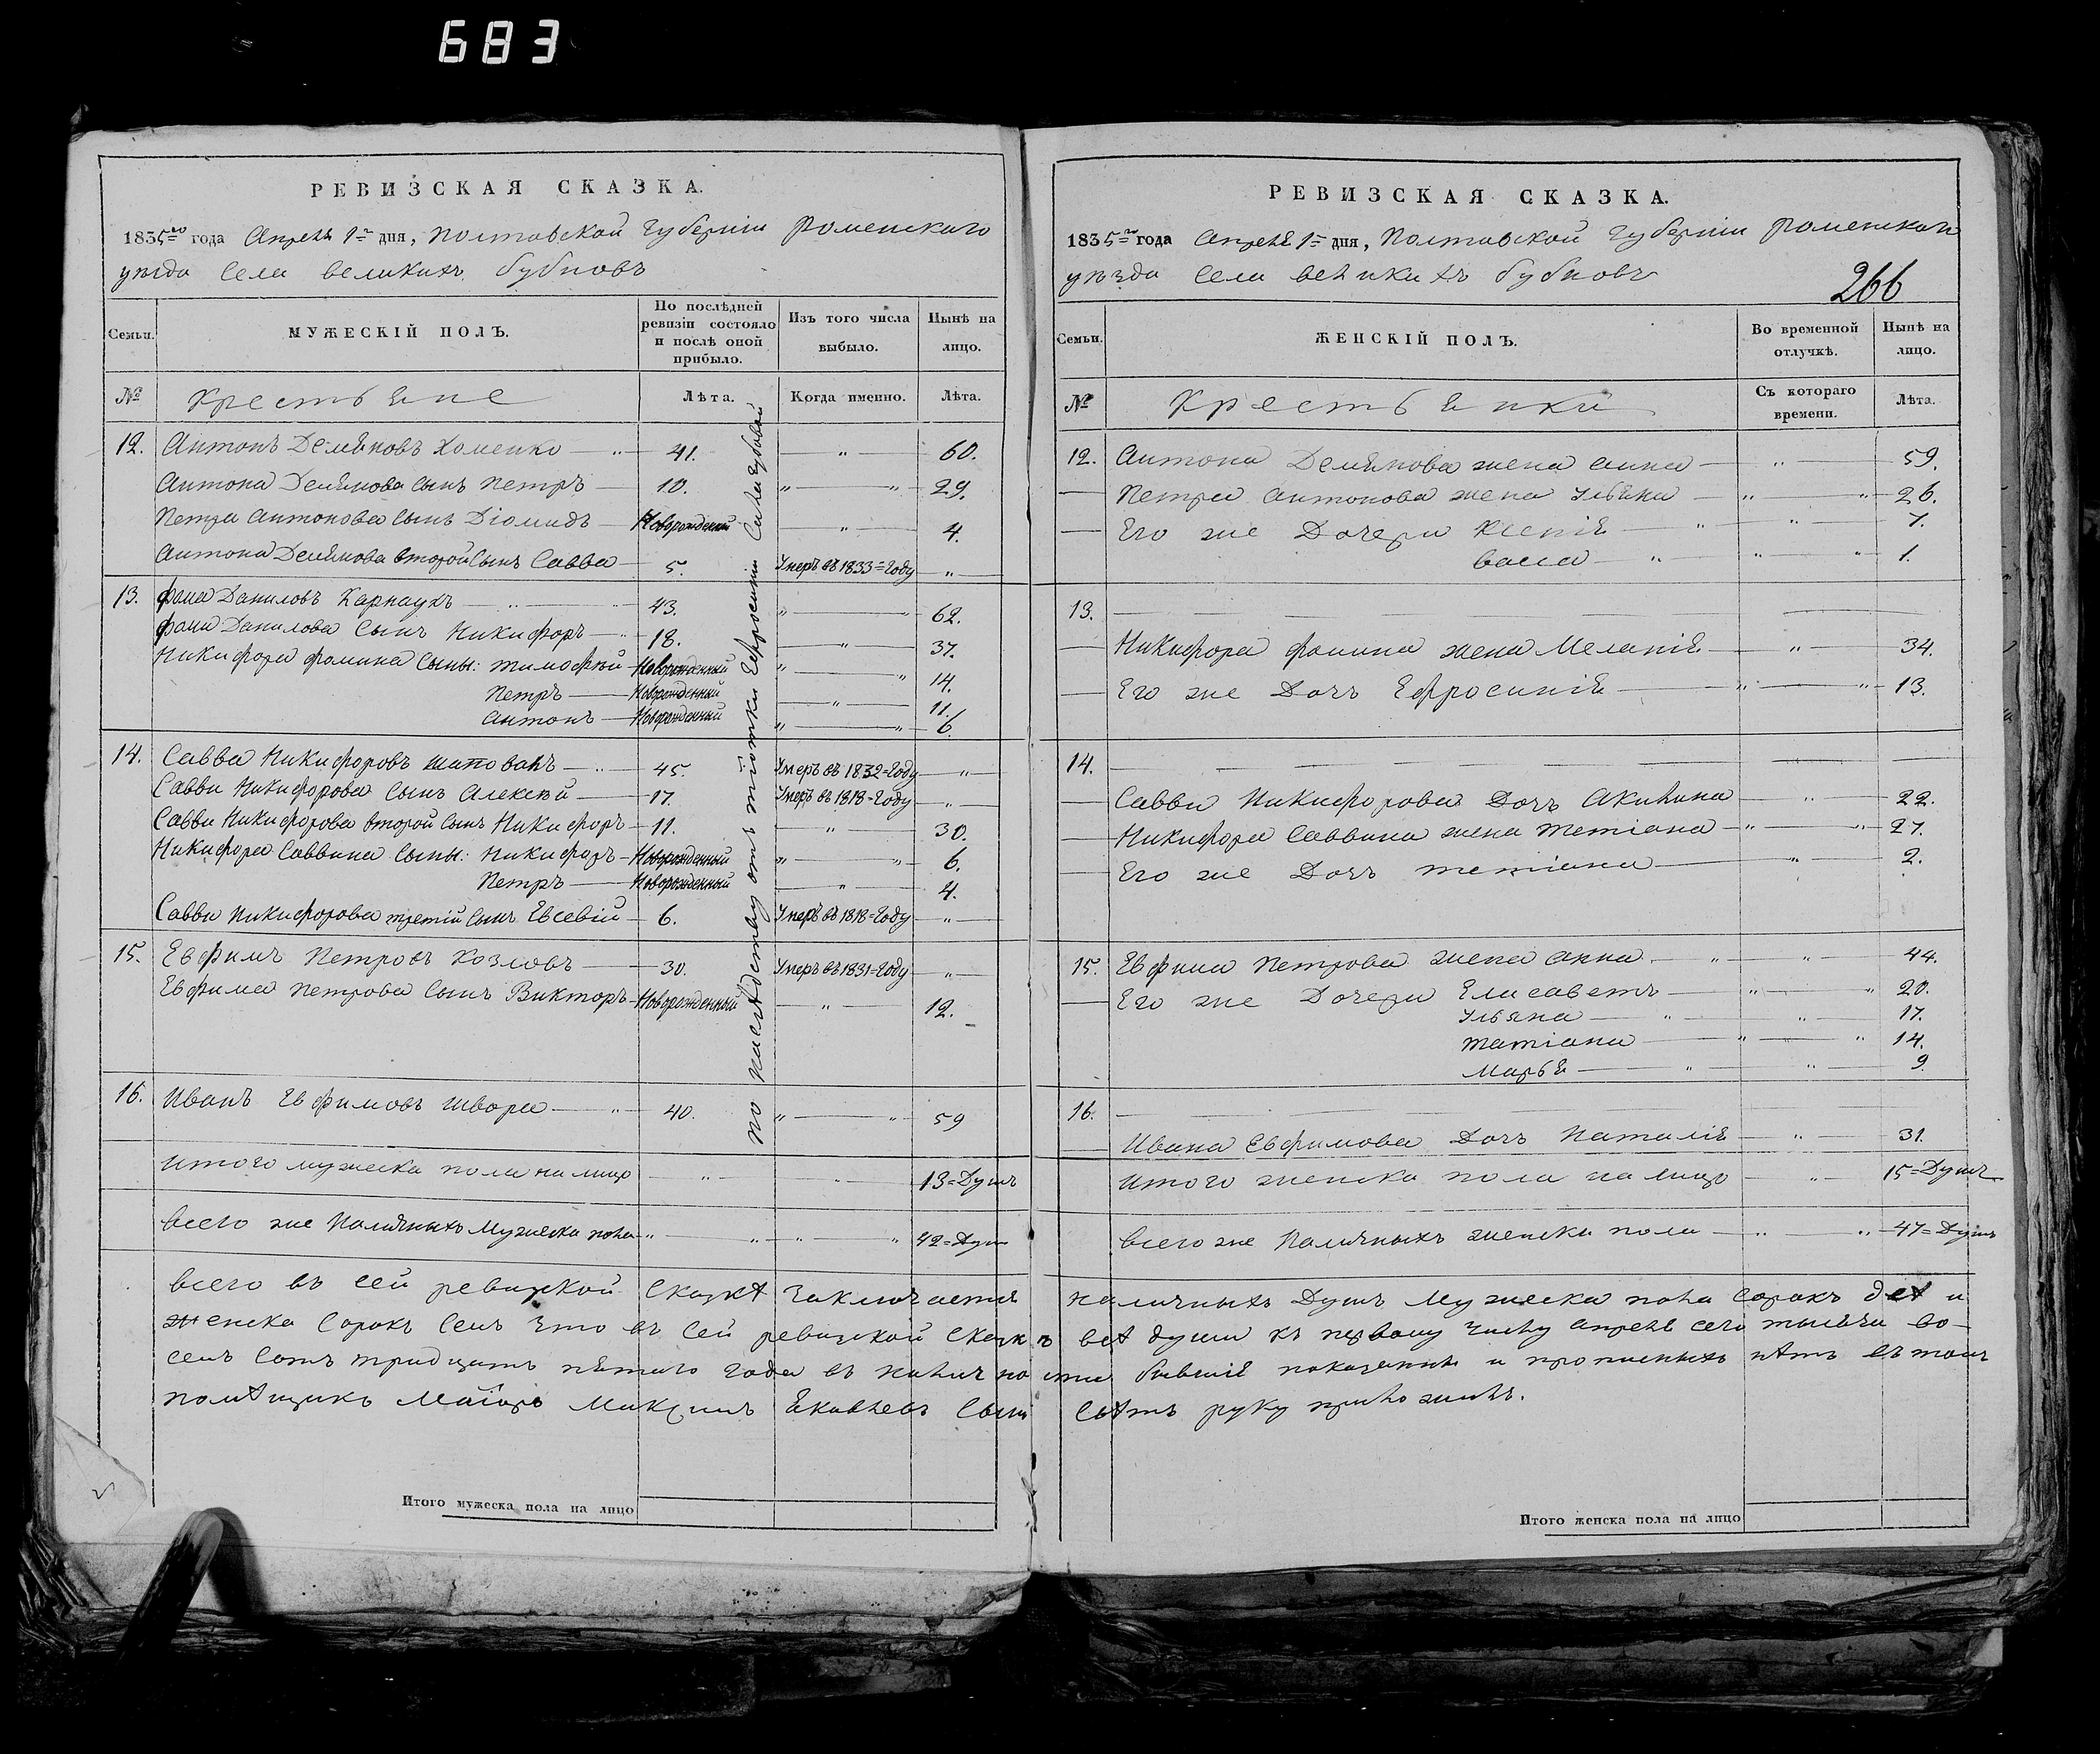 683
РЕВИЗСКАЯ СКАЗКА.
1835го года Апреля 1го дня, Полтавской Губернии Роменского
уезда Села великихъ бубновъ
Семьи.
МУЖЕСКІЙ ПОЛЪ.
По послѣдней ревизіи состояло и послѣ оной прибыло.
Изъ того числа выбыло.
Нынѣ на лицо.
№ Крестьяне Лѣта. Когда именно. Лѣта.
12. Антонъ Демяновъ Хоменко — 41. — " — 60.
Антона Демянова Сынъ Петръ — 10. " — " 29.
Петра Антонова Сынъ Діомидъ — Новорожденный — " — 4.
Антона Демянова второй Сынъ Савва — 5. Умеръ въ 1833=Году — " —
13. Фома Даниловъ Карнаухъ — 43. " — " 62.
Фомы Данилова Сынъ Никифоръ — 18. — " — 37.
Никифора Фомина Сыны: Тимофѣй — Новорожденный " — " 14.
Петръ — Новорожденный — " — 11.
Антонъ — Новорожденный " — " 6.
14. Савва Никифоровъ Шаповалъ — 45. Умеръ въ 1832=Году — " —
Саввы Никифорова Сынъ Алексѣй — 17. Умеръ въ 1818=Году — " —
Саввы Никифорова второй Сынъ Никифоръ — 11. — " — 30.
Никифора Саввина Сыны: Никифоръ — Новорожденный " — " 6.
Петръ — Новорожденный — " — 4.
Саввы Никифорова третій Сынъ Евсевій — 6. Умеръ въ 1818=Году — " —
15. Евфимъ Петровъ Козловъ — 30. Умеръ въ 1831=Году — " —
Евфима Петрова Сынъ Викторъ — Новорожденный — " — 12.
16. Иванъ Евфимовъ Швора — 40. " — " 59
Итого мужеска пола на лицо — " — 13=Душъ
Всего же Наличныхъ Мужеска пола " — " 42=Душ
по наследству отъ тіотки Ефросиніи
РЕВИЗСКАЯ СКАЗКА.
1835го года Апреля 1го дня, Полтавской Губерніи Роменского
уѣзда Села великихъ бубновъ
266
Семьи.
ЖЕНСКІЙ ПОЛЪ.
Во временной отлучкѣ.
Нынѣ на лицо.
№ Крестьянки Съ котораго времени. Лѣта.
12. Антона Демянова жена Анна — " — 59.
Петра Антонова жена Ульяна — " — " 26.
Его же Дочери Ксенія — " — 7.
Васса — " — " 1.
13.
Никифора Фомина жена Меланія — " — 34.
Его же Дочь Ефросинія — " — " 13.
14.
Саввы Никифорова Дочь Акилина — " — 22.
Никифора Саввина жена Тетіана — " — " 27.
Его же Дочь Тетіана — " — 2.
15. Евфима Петрова жена Анна — " — 44.
Его же Дочери Елисаветъ — " — " 20.
Ульяна — " — 17.
Татіана — " — " 14.
Марья — " — 9.
16.
Ивана Евфимова Дочь Наталія — " — 31.
Итого женска пола на лицо — " — 15=Душъ
Всего же Наличныхъ женска пола — " — " 47=Душъ
Всего въ сей ревизской Сказкѣ Заключается наличныхъ Душъ Мужеска пола Сорокъ двѣ и
женска Сорокъ Семъ Что въ Сей ревизской Сказкѣ всѣ души къ первому Числу Апреля сего тысяча во-
семъ Сотъ тридцать пятого года въ наличности бывшіе показанны и прописныхъ нѣтъ въ томъ
помѣщикъ Маіоръ Максимъ Яковлевъ Сынъ руку приложилъ.
Итого мужеска пола на лицо
Итого женска пола на лицо